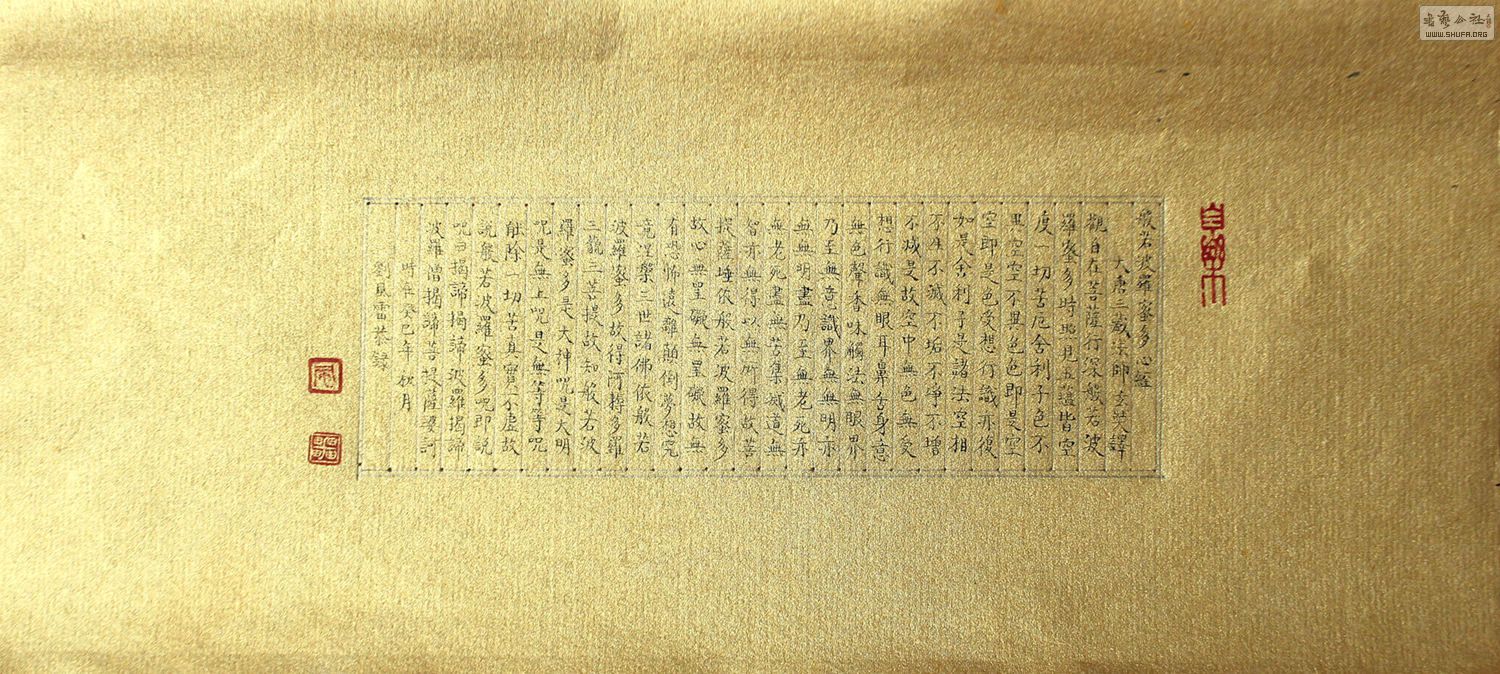 般若波羅蜜多心經
大唐三藏法師玄奘譯
觀自在菩薩行深般若波
羅蜜多時照見五蘊皆空
度一切苦厄舍利子色不
異空空不異色色即是空
空即是色受想行識亦復
如是舍利子是諸法空相
不生不滅不垢不淨不增
不減是故空中無色無受
想行識無眼耳鼻舌身意
無色聲香味觸法無眼界
乃至無意識界無無明亦
無無明盡乃至無老死亦
無老死盡無苦集滅道無
智亦無得以無所得故菩
提薩埵依般若波羅蜜多
故心無罣礙無罣礙故無
有恐怖遠離顛倒夢想究
竟涅槃三世諸佛依般若
波羅蜜多故得阿耨多羅
三藐三菩提故知般若波
羅蜜多是大神咒是大明
咒是無上咒是無等等咒
能除一切苦真實不虛故
說般若波羅蜜多咒即說
咒曰揭諦揭諦波羅揭諦
波羅僧揭諦菩提薩婆訶
時在癸巳年秋月
劉風雷恭錄
書藝公社
WWW.SHUFA.ORG